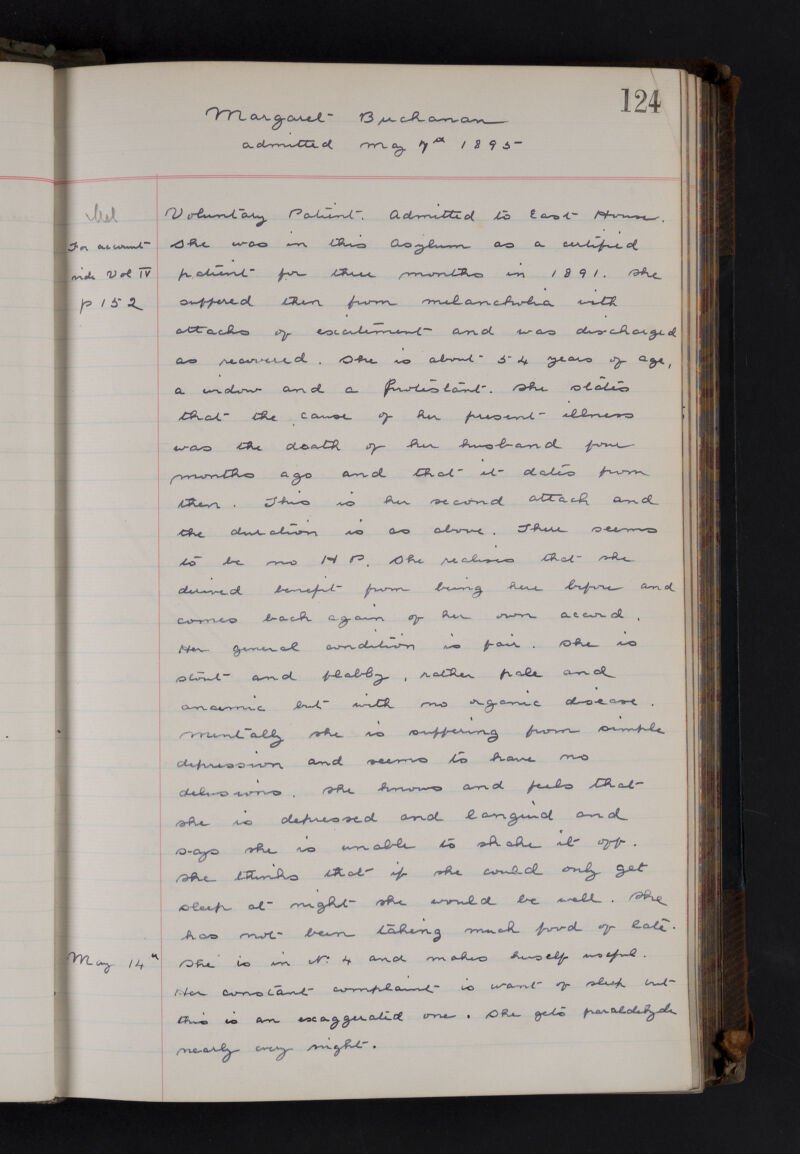 124
Margaret Buchanan
admitted May 7th 1895
Mel
For account
vide Vol IV
p 152
Voluntary Patient. Admitted to East House.
She was in this Asylum as a certified
patient for three months in 1891. She
suffered then from melancholia with
attacks of excitement and was discharged
as recovered. She is about 54 years of age,
a widow and a Protestant. She states
that the cause of her present illness
was the death of her husband four
months ago and that it dates from
then. This is her second attack and
the duration is as above. There seems
to be no H P. She realises that she
derived benefit from being here before and
comes back again of her own accord.
Her general condition is fair. She is
stout and flabby, rather pale and
anaemic but with no organic disease.
Mentally she is suffering from simple
depression and seems to have no
delusions. She knows and feels that
she is depressed and languid and
says she is unable to shake it off.
She thinks that if she could only get
sleep at night she would be well. She
has not been taking much food of late.
May 14th She is in N. 4 and makes herself useful.
Her constant complaint is want of sleep but
this is an exaggerated one. She gets paraldehyde
nearly every night.